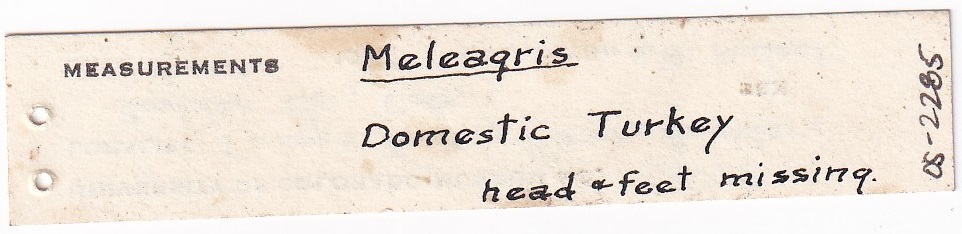 MEASUREMENTS
Meleagris
Domestic Turkey
head & feet missing.
OS-2285